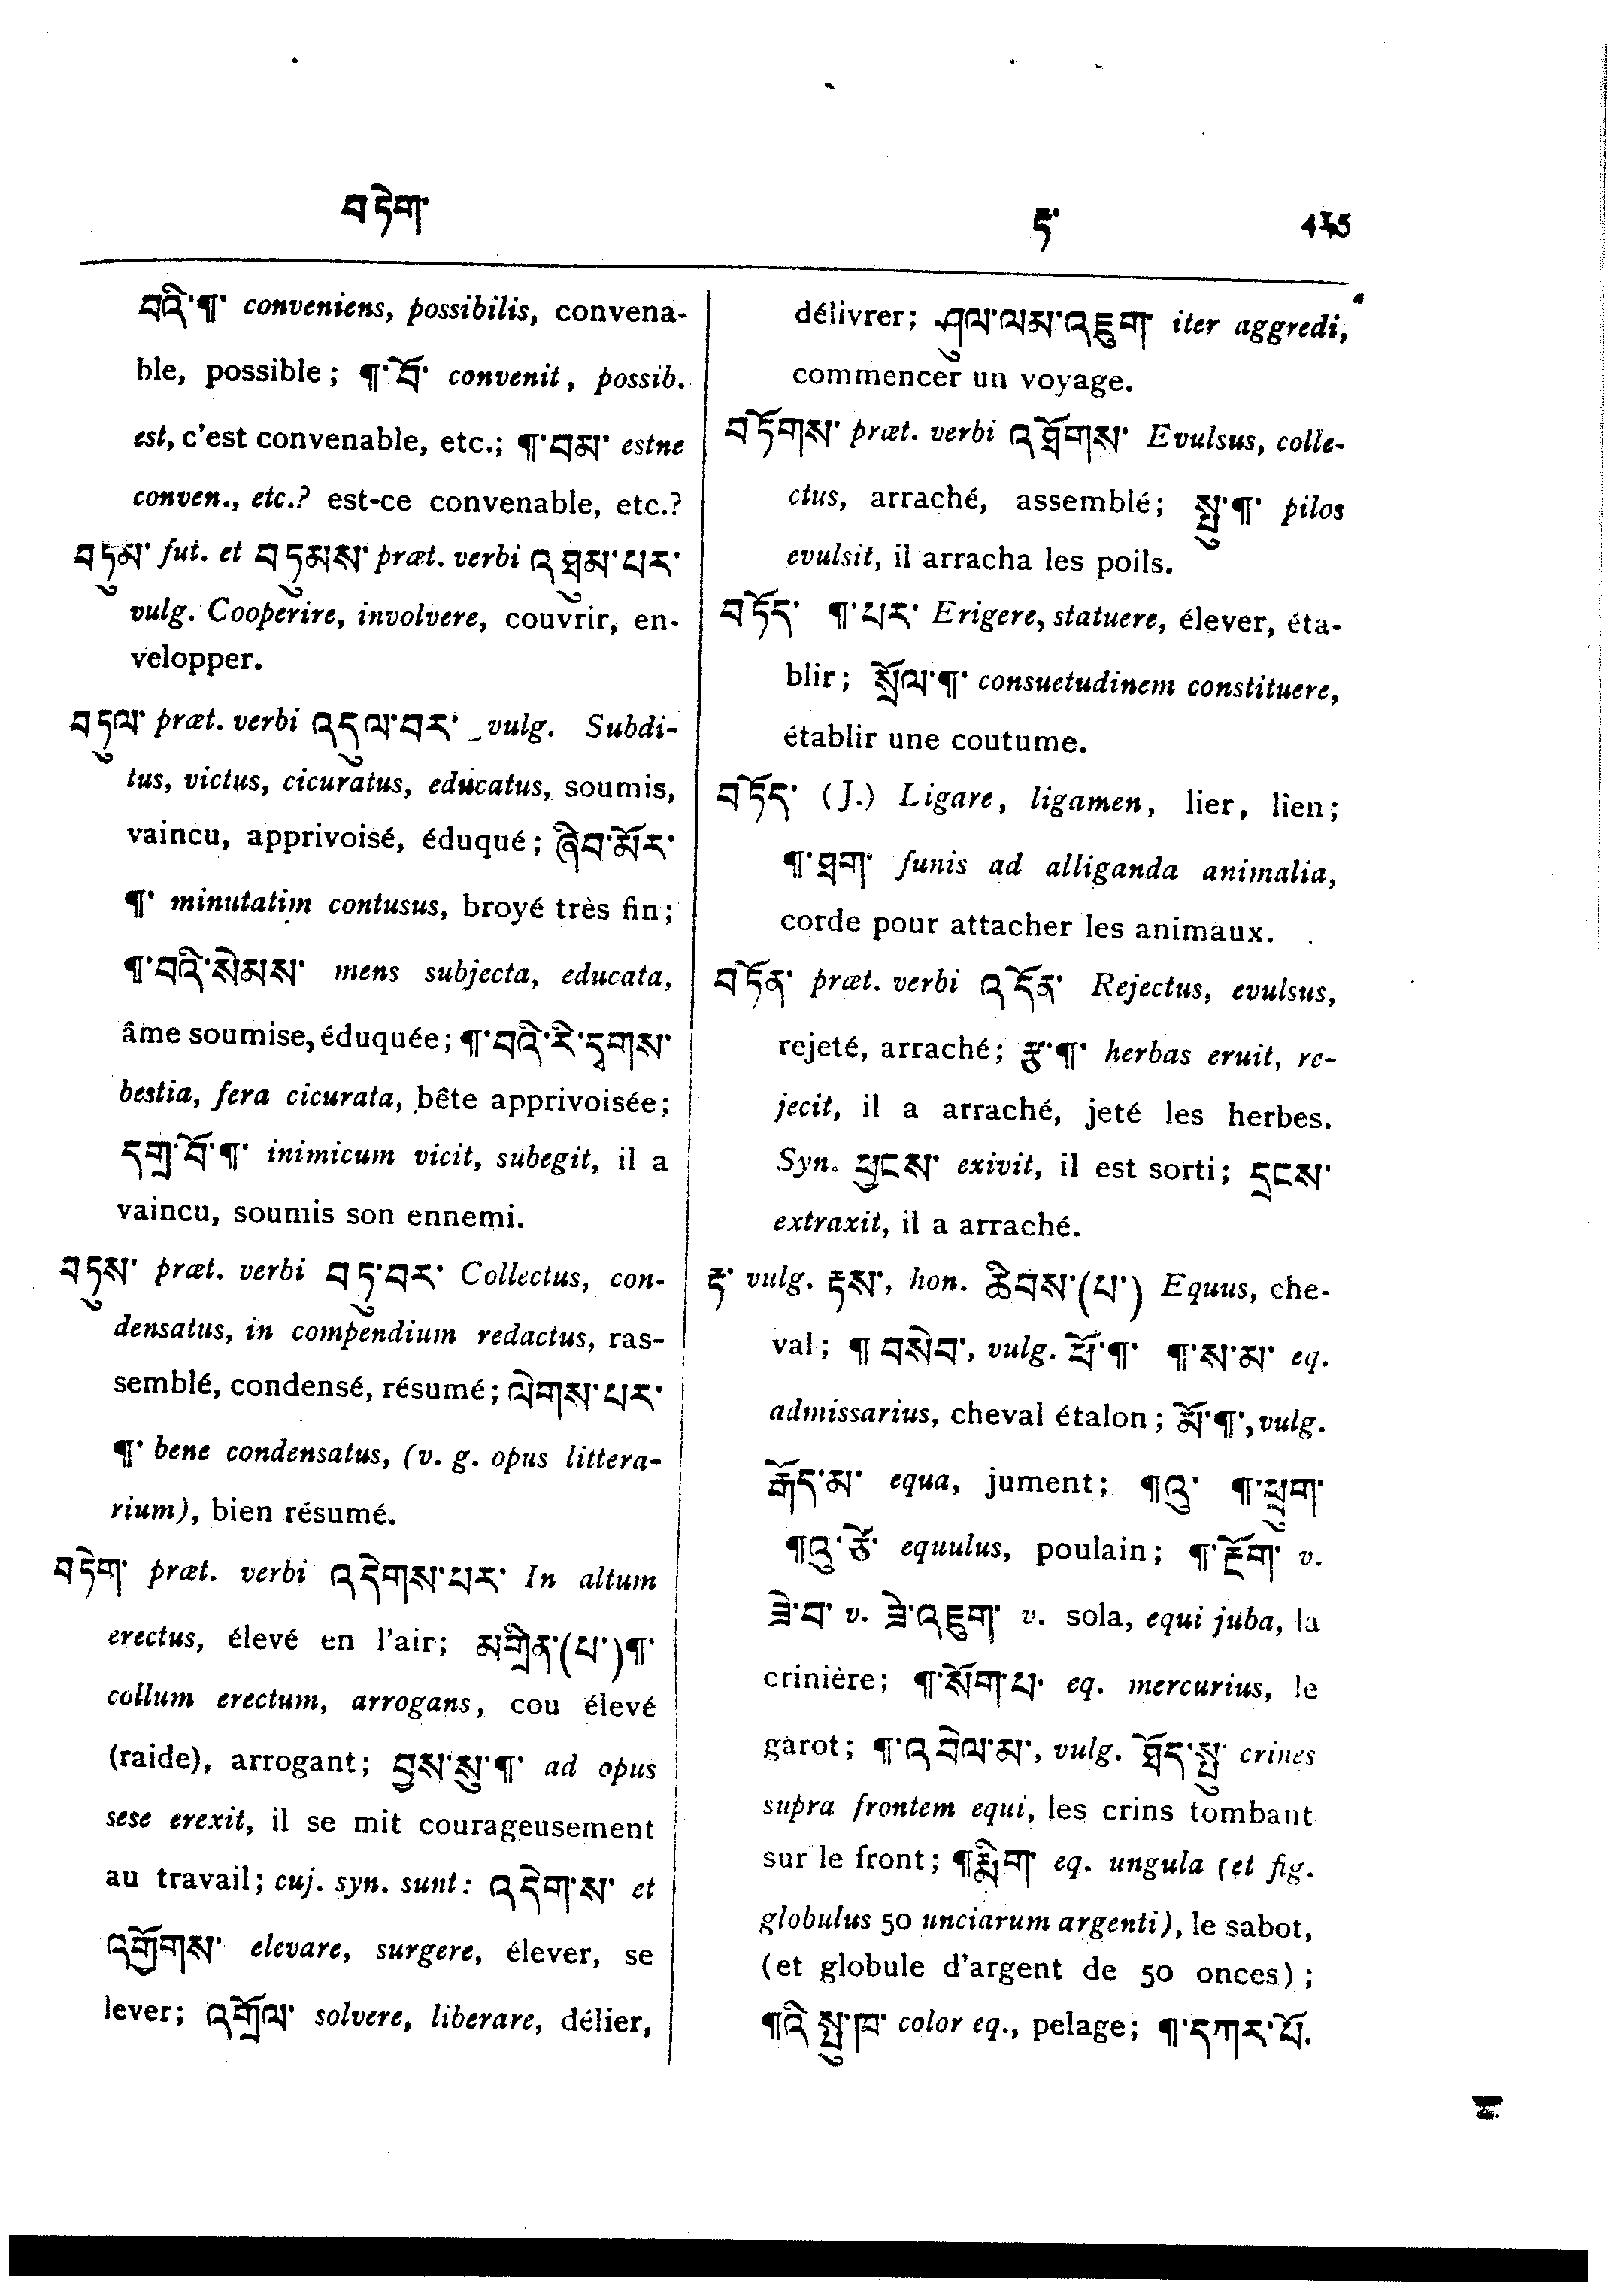 བཏེག་
རྟ་ 415
བའི་¶་ conveniens, possibilis, convena-
ble, possible; ¶་བོ་ convenit, possib.
est, c'est convenable, etc.; ¶་བམ་ estne
conven., etc.? est-ce convenable, etc.?
བཏུམ་ fut. et བཏུམས་ præt. verbi འཐུམ་པར་
vulg. Cooperire, involvere, couvrir, en-
velopper.
བཏུལ་ præt. verbi འདུལ་བར་ vulg. Subdi-
tus, victus, cicuratus, educatus, soumis,
vaincu, apprivoisé, éduqué; ཞིབ་མོར་
¶་ minutatim contusus, broyé très fin;
¶་བའི་སེམས་ mens subjecta, educata,
âme soumise, éduquée; ¶་བའི་རི་དྭགས་
bestia, fera cicurata, bête apprivoisée;
དགྲ་བོ་¶་ inimicum vicit, subegit, il a
vaincu, soumis son ennemi.
བཏུས་ præt. verbi བཏུ་བར་ Collectus, con-
densatus, in compendium redactus, ras-
semblé, condensé, résumé; ལེགས་པར་
¶་ bene condensatus, (v. g. opus littera-
rium), bien résumé.
བཏེག་ præt. verbi འདེགས་པར་ In altum
erectus, élevé en l'air; མགྲིན་(པ་)¶་
collum erectum, arrogans, cou élevé
(raide), arrogant; བྱས་སུ་¶་ ad opus
sese erexit, il se mit courageusement
au travail; cuj. syn. sunt: འདེག་ས་ et
འགྱོགས་ elevare, surgere, élever, se
lever; འགྲོལ་ solvere, liberare, délier,
délivrer; ཤུལ་ལམ་འཇུག་ iter aggredi,
commencer un voyage.
བཏོགས་ præt. verbi འཐོགས་ Evulsus, colle-
ctus, arraché, assemblé; སྤུ་¶་ pilos
evulsit, il arracha les poils.
བཏོད་ ¶་པར་ Erigere, statuere, élever, éta-
blir; སྲོལ་¶་ consuetudinem constituere,
établir une coutume.
བཏོད་ (J.) Ligare, ligamen, lier, lien;
¶་ཐག་ funis ad alliganda animalia,
corde pour attacher les animaux.
བཏོན་ præt. verbi འདོན་ Rejectus, evulsus,
rejeté, arraché; རྩྭ་¶་ herbas eruit, re-
jecit, il a arraché, jeté les herbes.
Syn. ཕྱུངས་ exivit, il est sorti; དྲངས་
extraxit, il a arraché.
རྟ་ vulg. རྟས་, hon. ཆིབས་(པ་) Equus, che-
val; ¶ བསེབ་, vulg. ཕོ་¶་ ¶་ས་མ་ eq.
admissarius, cheval étalon; མོ་¶་, vulg.
རྒོད་མ་ equa, jument; ¶འུ་ ¶་ཕྲུག་
¶འུ་ཙོ་ equulus, poulain; ¶་རྔོག་ v.
ཟེ་བ་ v. ཟེ་འཇུག་ v. sola, equi juba, la
crinière; ¶་སོག་པ་ eq. mercurius, le
garot; ¶་འབེལ་མ་, vulg. ཐོད་སྤུ་ crines
supra frontem equi, les crins tombant
sur le front; ¶རྨིག་ eq. ungula (et fig.
globulus 50 unciarum argenti), le sabot,
(et globule d'argent de 50 onces);
¶འི་སྤུ་ཁ་ color eq., pelage; ¶་དཀར་པོ.